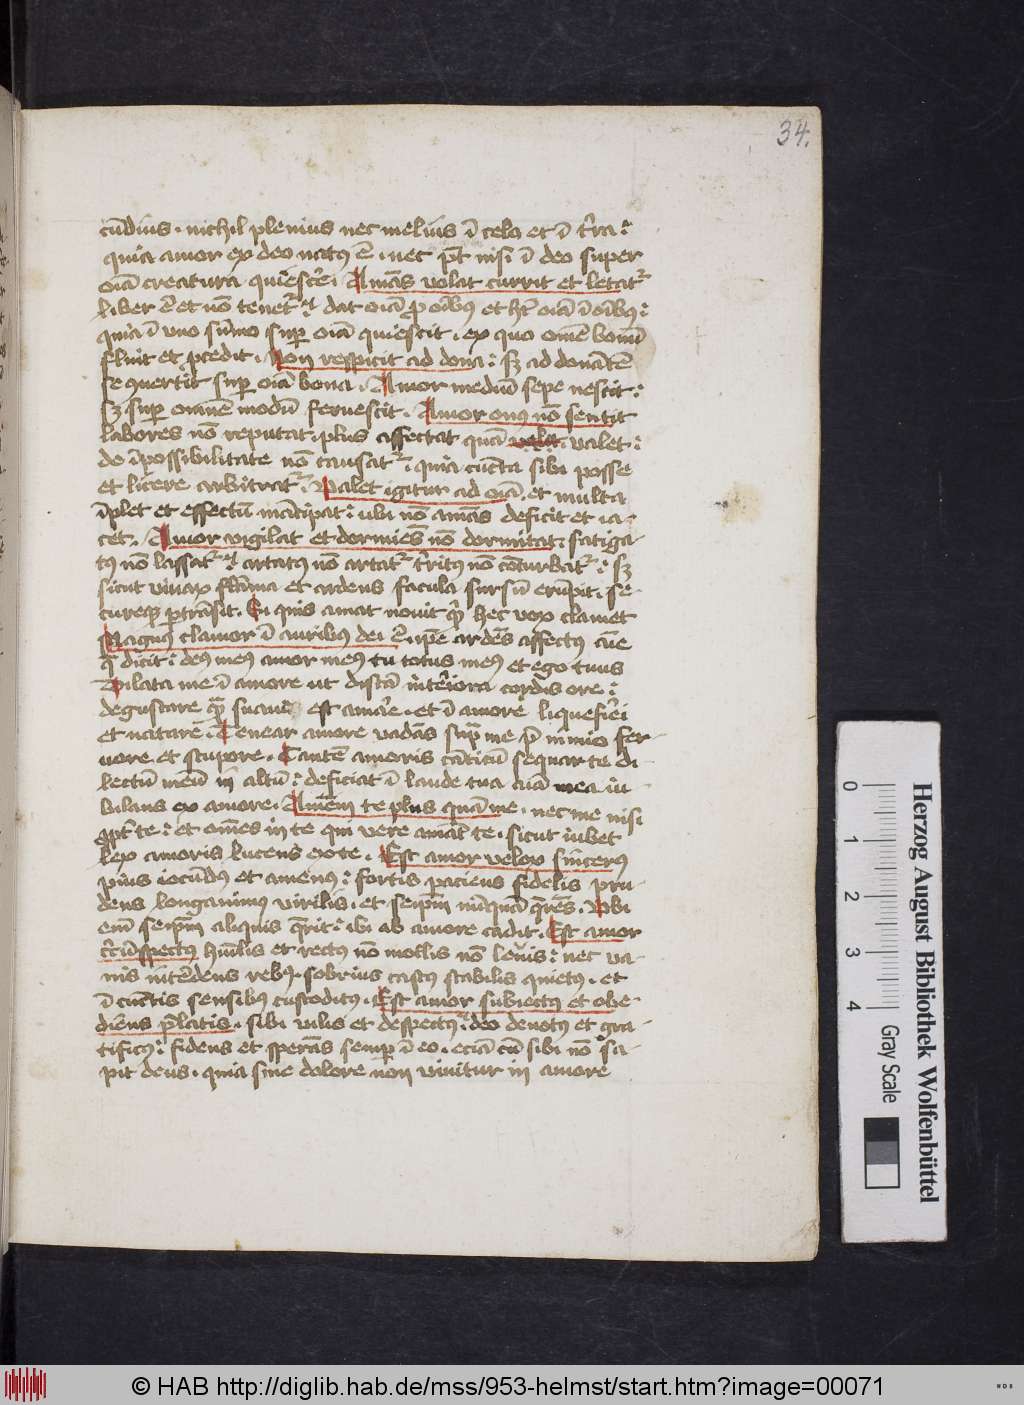 34.
cūdius. nichil plenius nec melius ī celo et ī t'ra:
quia amor ex deo natus ē. nec pt̄ nisi ī deo super
oīa creatura quiesc'e. Amās volat currit et letat̛
liber ē et nō tenet̛: dat oīa p oībus et ht̄ oīa ī oībus:
quia ī vno sūmo sup oīa quiescit. ex quo omē bonū
fluit et pcedit. Non respicit ad dona: sꝫ ad donātē
se quertit sup oīa bona. Amor modum sepe nescit:
sꝫ sup omnē modū feruescit. Amor onus nō sentit
labores nō reputat. plus affectat quā valet:
de īpossibilitate nō causat̛. quia cūcta sibi posse
et licere arbitrat̛. Valet igitur ad oīa. et multa
īplet et effectū mācipat: ubi nō amās deficit et ia-
cet. Amor vigilat et dormiēs nō dormitat: fatiga-
tus nō lassat̛: artatus nō artat̛ t'ritus nō cōturbat̛: sꝫ
sicut viuax flāma et ardens facula sursū erūpit. se-
cureqꝫ ptrāsit. Si quis amat nouit q̄ hec vox clamet
Magnus clamor ī auribus dei ē. ip̄e ardēs affectus aīe
q̄ dicit: deus meus amor meus tu totus meus et ego tuus
Dilata me ī amore ut discā int'iora cordis ore:
degustare q̄ suaue est amare. et ī amore liquefieri
et natare. Tenear amore vadās supra me p nimio fer-
uore et stupore. Cantē amoris cāticū sequar te di-
lectū meū in altū: deficiat ī laude tua aīa mea iu-
bilans ex amore. Amem te plus quā me. nec me nisi
ꝓpt' te: et omēs in te qui vere amāt te. sicut iubet
lex amoris lucens ex te. Est amor velox sīncerus
pius iocūdus et amenus: fortis paciens fidelis pru-
dens longanimus virilis. et seip̄m nūquā q̄rēs. Vbi
enī seip̄m aliquis q̄rit: ibi ab amore cadit. Est amor
circūspectus hūilis et rectus nō mollis nō leuis: nec va-
nis intēdens rebus. sobrius castus stabilis quietus. et
ī cunctis sensibus custoditus. Est amor subiectus et obe-
diēns p̄latis. sibi vilis et despectus: deo deuotus et gra-
tificus: fidens et sperās semp ī eo. eciā cū sibi nō sa-
pit deus. quia sine dolore non viuitur in amore
Herzog August Bibliothek Wolfenbüttel
0 1 2 3 4
Gray Scale
© HAB http://diglib.hab.de/mss/953-helmst/start.htm?image=00071